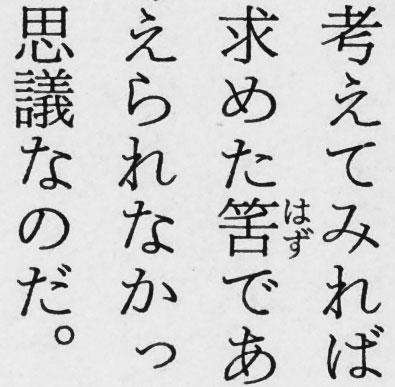 考えてみれば
求めた筈であ
はず
えられなかっ
思議なのだ。